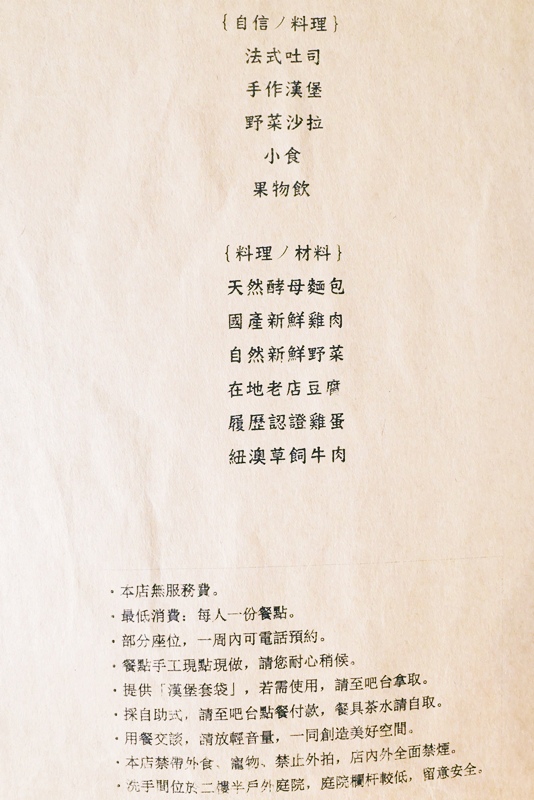 {自信／料理}
法式吐司
手作漢堡
野菜沙拉
小食
果物飲
{料理／材料}
天然酵母麵包
國產新鮮雞肉
自然新鮮野菜
在地老店豆腐
履歷認證雞蛋
紐澳草飼牛肉
・本店無服務費。
・最低消費：每人一份餐點。
・部分座位，一周內可電話預約。
・餐點手工現點現做，請您耐心稍候。
・提供「漢堡套袋」，若需使用，請至吧台拿取。
・採自助式，請至吧台點餐付款，餐具茶水請自取。
・用餐交談，請放輕音量，一同創造美好空間。
・本店禁帶外食、寵物、禁止外拍，店內外全面禁煙。
・洗手間位於二樓半戶外庭院，庭院欄杆較低，留意安全。